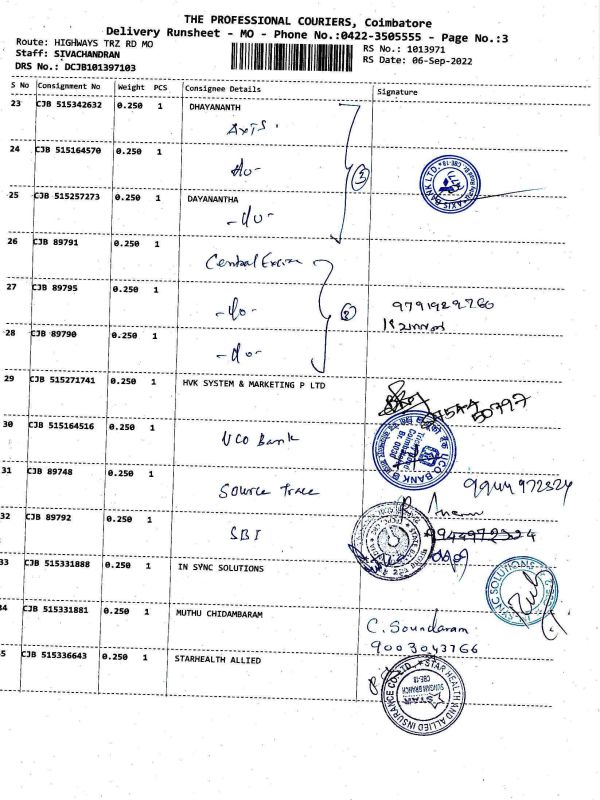 THE PROFESSIONAL COURIERS, Coimbatore
Delivery Runsheet - MO - Phone No.:0422-3505555 - Page No.:3
Route: HIGHWAYS TRZ RD MO
RS No.: 1013971
Staff: SIVACHANDRAN
RS Date: 06-Sep-2022
DRS No.: DCJB101397103
S No Consignment No Weight PCS Consignee Details Signature
23 CJB 515342632 0.250 1 DHAYANANTH
AXIS.
24 CJB 515164570 0.250 1
-do-
AXIS BANK LTD.
25 CJB 515257273 0.250 1 DAYANANTHA
-do-
26 CJB 89791 0.250 1 Central Excise
27 CJB 89795 0.250 1
-do-
9791929760
28 CJB 89790 0.250 1
-do-
29 CJB 515271741 0.250 1 HVK SYSTEM & MARKETING P LTD
50797
30 CJB 515164516 0.250 1
UCO Bank
UCO BANK
31 CJB 89748 0.250 1
Source Trace
9944972324
32 CJB 89792 0.250 1
SBI
9944972324
33 CJB 515331888 0.250 1 IN SYNC SOLUTIONS
SYNC SOLUTIONS
34 CJB 515331881 0.250 1 MUTHU CHIDAMBARAM
C. Soundaram
9003043766
35 CJB 515336643 0.250 1 STARHEALTH ALLIED
STAR HEALTH AND ALLIED INSURANCE CO. LTD.
STAR
SUNGAM BRANCH
CBE-18